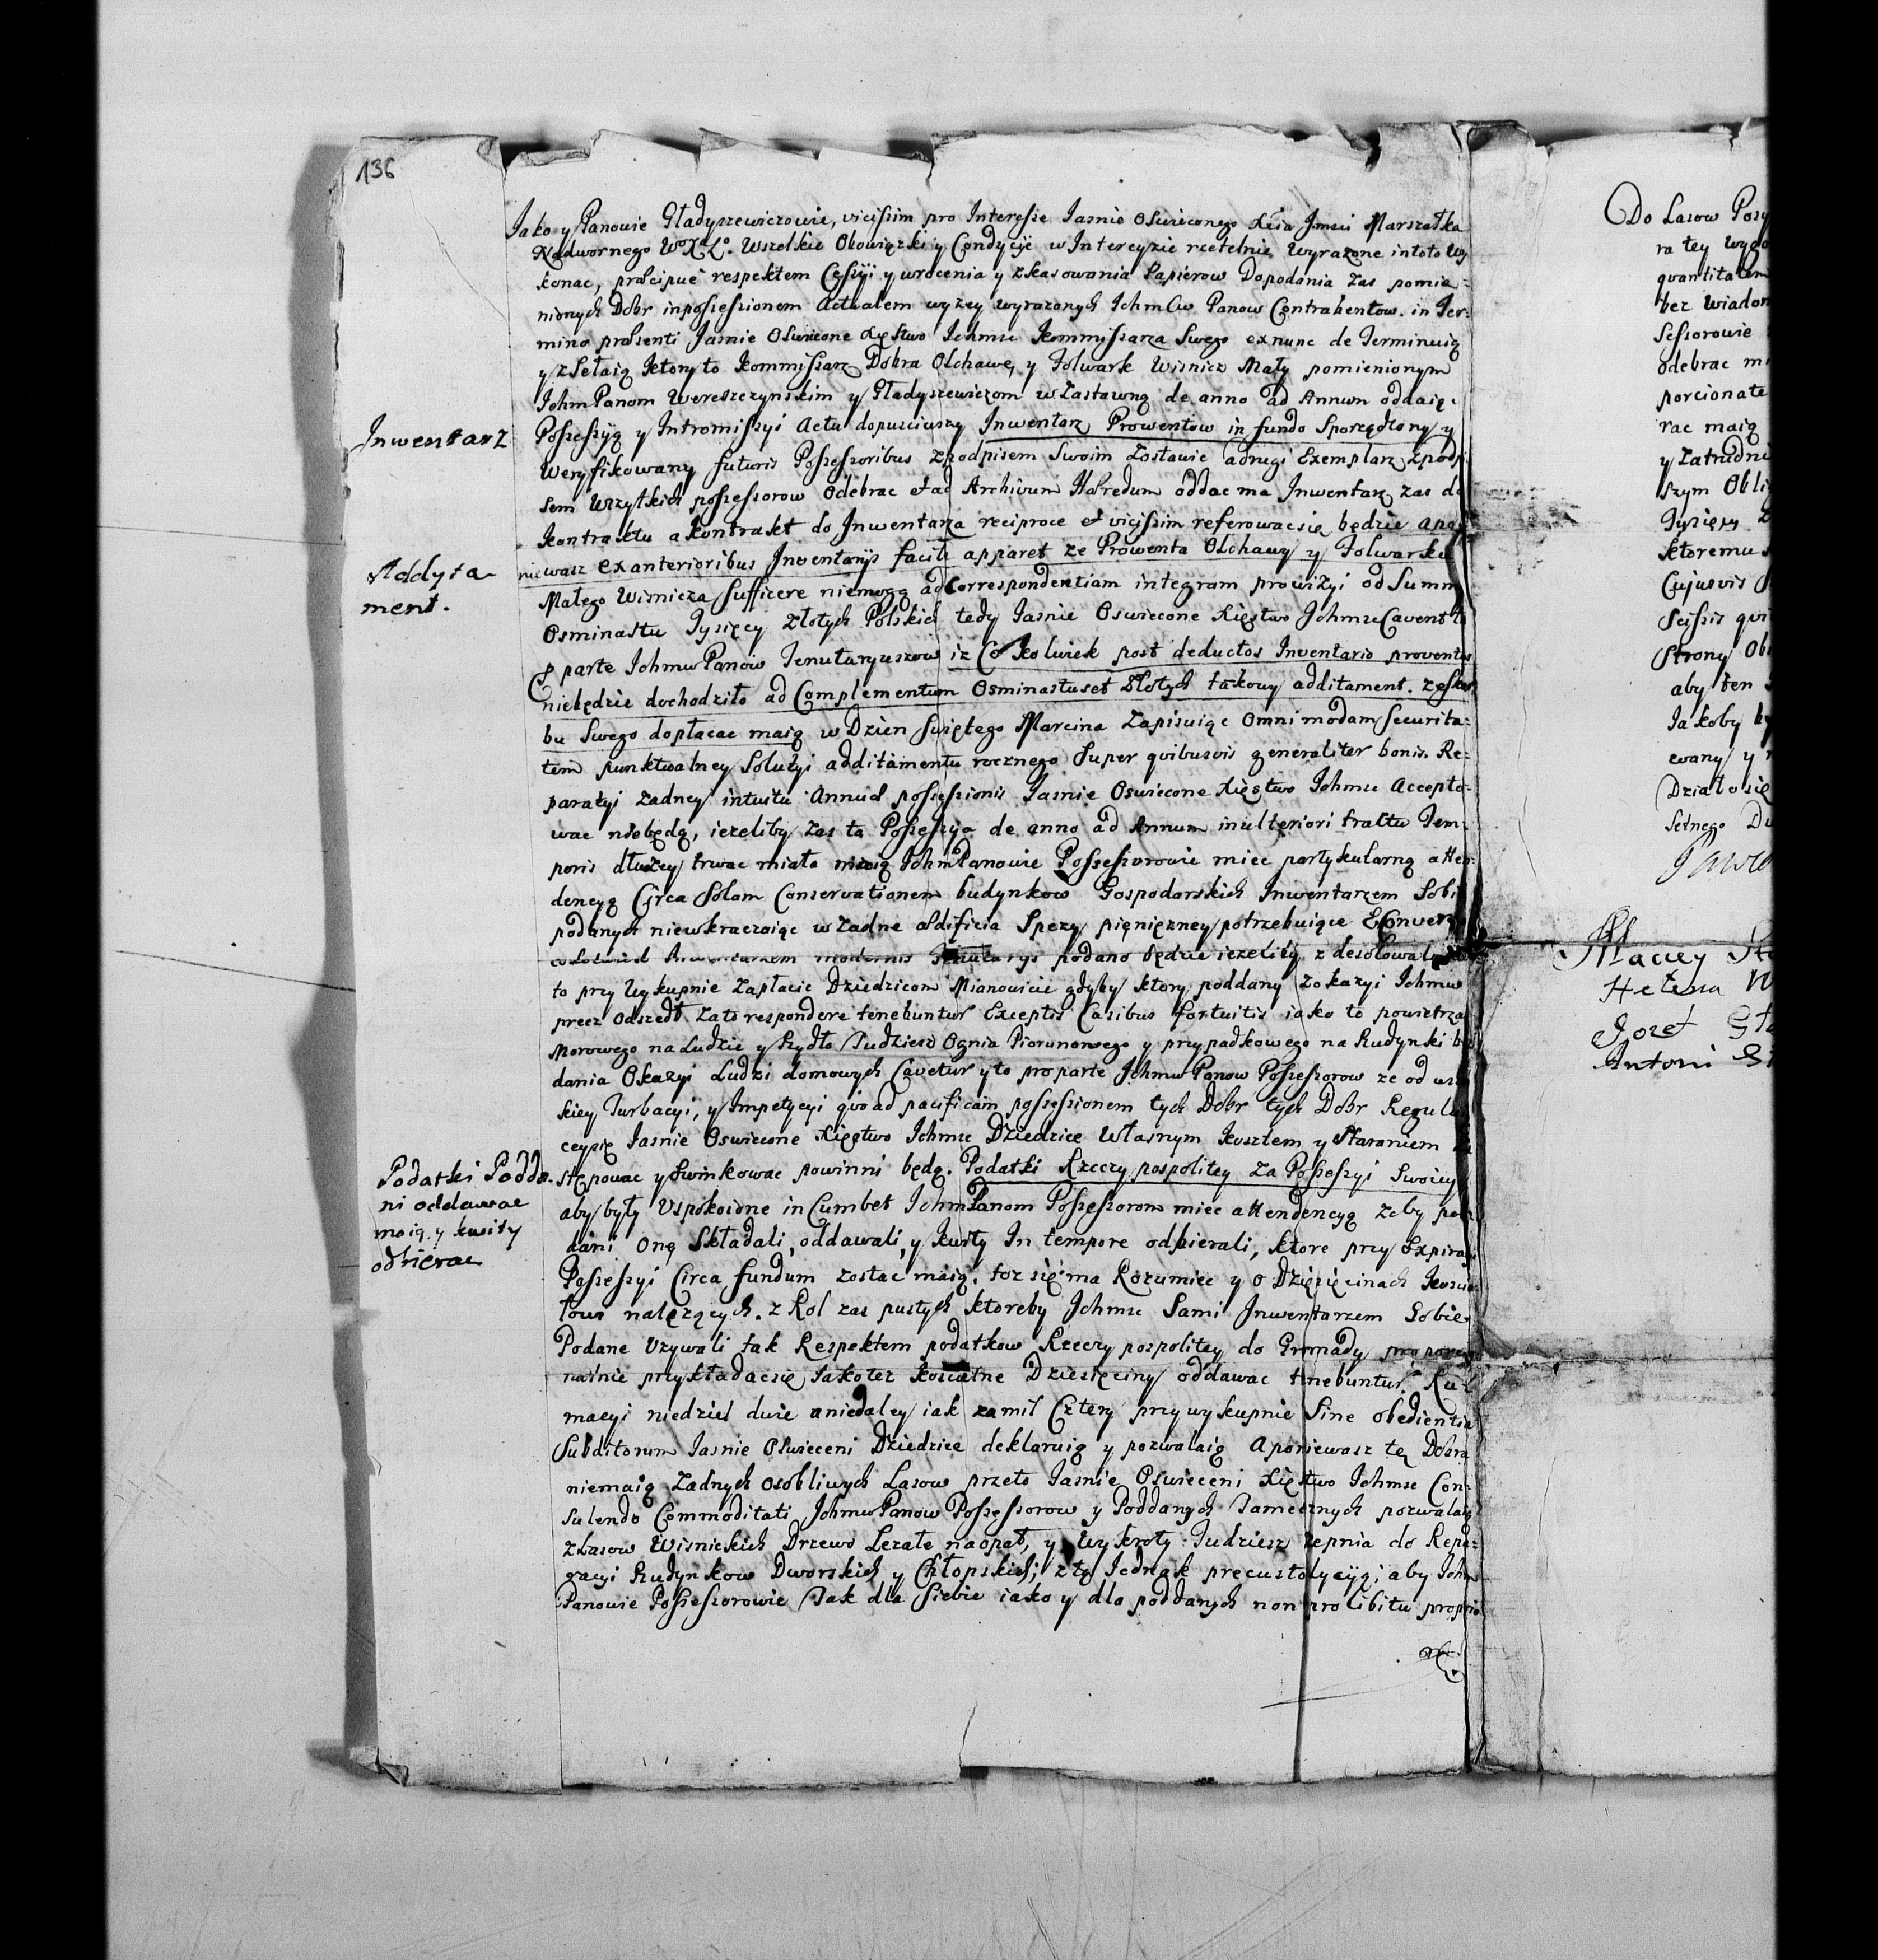 136
Jako y Panowie Gładyszewiczowie, vicissim pro Interesse Jasnie Oswieconego Xcia Jmsci Marszałka
Nadwornego W° X° L°. Wszelkie Obowiązki y Condycye w Intercyzie rzetelnie wyrazone in toto wy
konac, præcipuè respektem Cessyi y wrocenia y zkasowania Papierow Do podania zas pomie-
nionych Dobr in possessionem Actualem wyzey wyrazonych Ichmćw Panow Contrahentow. in Ter-
mino præsenti Jasnie Oswiecone Xięstwo Ichmsc Kommissarza Swego ex nunc de Terminuią
y zsełaią ktory to Kommissarz Dobra Olchawę, y Folwark Wisnicz Mały pomienionym
Ichm Panom Wereszczynskim y Gładyszewiczom w Zastawną de anno ad Annum oddaiąc
Inwentarz
Possessyą y Intromissyi Actu dopusciwszy Inwentarz Prowentow in fundo Sporządzony y
Weryfikowany futuris Possessoribus z podpisem Swoim Zostawic a drugi Exemplarz z podpi
sem Wszytkich possessorow Odebrac et ad Archivum Hæredum oddac ma Inwentarz zas do
Kontraktu a Kontrakt do Inwentarza reciproce et vicissim referowac się będzie a po
Addyta
ment.
niewasz ex anterioribus Inventarijs facile apparet ze Prowenta Olchawy y Folwarku
Małego Wisnicza sufficere niemogą ad Correspondentiam integram prowizyi od Summ
Osminastu Tysięcy Złotych Polskich tedy Jasnie Oswiecone Xięstwo Ichmsc Cavent
parte Ichmw Panow Tenutaryuszow iz Cokolwiek post deductos Inventario proventus
niebędzie dochodziło ad Complementum Osminastuset Złotych takowy additament. ze skar
bu Swego dopłacac maią w Dzien Swiętego Marcina Zapisuiąc Omnimodam Securita-
tem punktualney Soluzyi additamentu rocznego Super quibusvis generaliter bonis. Re-
paracyi Zadney intuitu Annuæ possessionis Jasnie Oswiecone Xięstwo Ichmsc Accepto-
wac niebędą, iezeliby zas ta Possessya de anno ad Annum in ulteriori tractu Tem-
poris dłuzey trwac miała maią Ichm Panowie Possessorowie miec partykularną atten-
dencyą Circa Solam Conservationem budynkow Gospodarskich Inwentarzem Sobie
podanych niewkraczaiąc w Zadne ædificia Spezy pienięzney potrzebuiące E Converso
cokolwiek Inwentarzem modernis Tenutarijs podano będzie iezeliby z desolowali
to przy Wykupnie Zapłacic Dziedzicom Mianowicie gdyby ktory poddany z okazyi Ichmw
precz odszedł. Za to respondere tenebuntur Exceptis Casibus fortuitis iako to powietrza
Morowego na Ludzie y Bydło Tudziesz Ognia Piorunowego y przypadkowego na Budynki bez
dania Okazyi Ludzi domowych Cavetur y to pro parte Ichmw Panow Possessorow ze od wszel
kiey Turbacyi, y Impetycyi quo ad pacificam possessionem tych Dobr tych Dobr Regulu
cey się Jasnie Oswiecone Xięstwo Ichmsc Dziedzice Własnym kosztem y Staraniem
Podatki Podda-
ni oddawac
maią y kwity
odbierac
stępowac y Ewinkowac powinni będą. Podatki Rzeczy pospolitey Za Possessyi Swoiey
aby były Uspokoione in Cumbet Ichm Panom Possessorom miec attendencyą zeby pod
dani one Składali, oddawali, y kwity In tempore odbierali, ktore przy Expiracyi
Possessyi Circa fundum zostac maią. toz się ma Rozumiec y o Dziesięcinach Koscio
łowi nalezących. z Rol zas pustych ktoreby Ichmsc Sami Inwentarzem Sobie
Podane Uzywali tak Respektem podatkow Rzeczy pospolitey do Gromady proporcyo
nalnie przykładac się Jakotez koscielne Dziesięciny oddawac tenebuntur. Ru-
macyi niedziel dwie a niedaley iak za mil Cztery przy wykupnie Sine obedientia
Subditorum Jasnie Oswieceni Dziedzice deklaruią y pozwalaią A poniewasz te Dobra
niemaią Zadnych osobliwych Lasow przeto Jasnie Oswieceni Xięstwo Ichmsc Con-
sulendo Commoditati Ichmw Panow Possessorow y Poddanych Tamecznych pozwalaią
z Lasow Wisnickich Drzewo Lezałe na opał, y wykroty Tudziesz zepnia do Repa-
racyi Budynkow Dworskich y Chłopskich; z tą Jednak precustodycyą; aby Ichm
Panowie Possessorowie Tak dla Siebie iako y dla poddanych non pro libitu proprio
Do Lasow Posy
ra tey wygo
quantitatem
bez wiadom
Sessorowie
odebrac m
porcionate
rac maią
y zatrudni
szym Obli
Tysięcy Z
ktoremu
Cujusvis
Scissis qui
Strony Ob
aby ten
Jakoby
cowany y
Działo się
Setnego Du
Pawe
Maciey
Helena W
Jozef Gła
Antoni